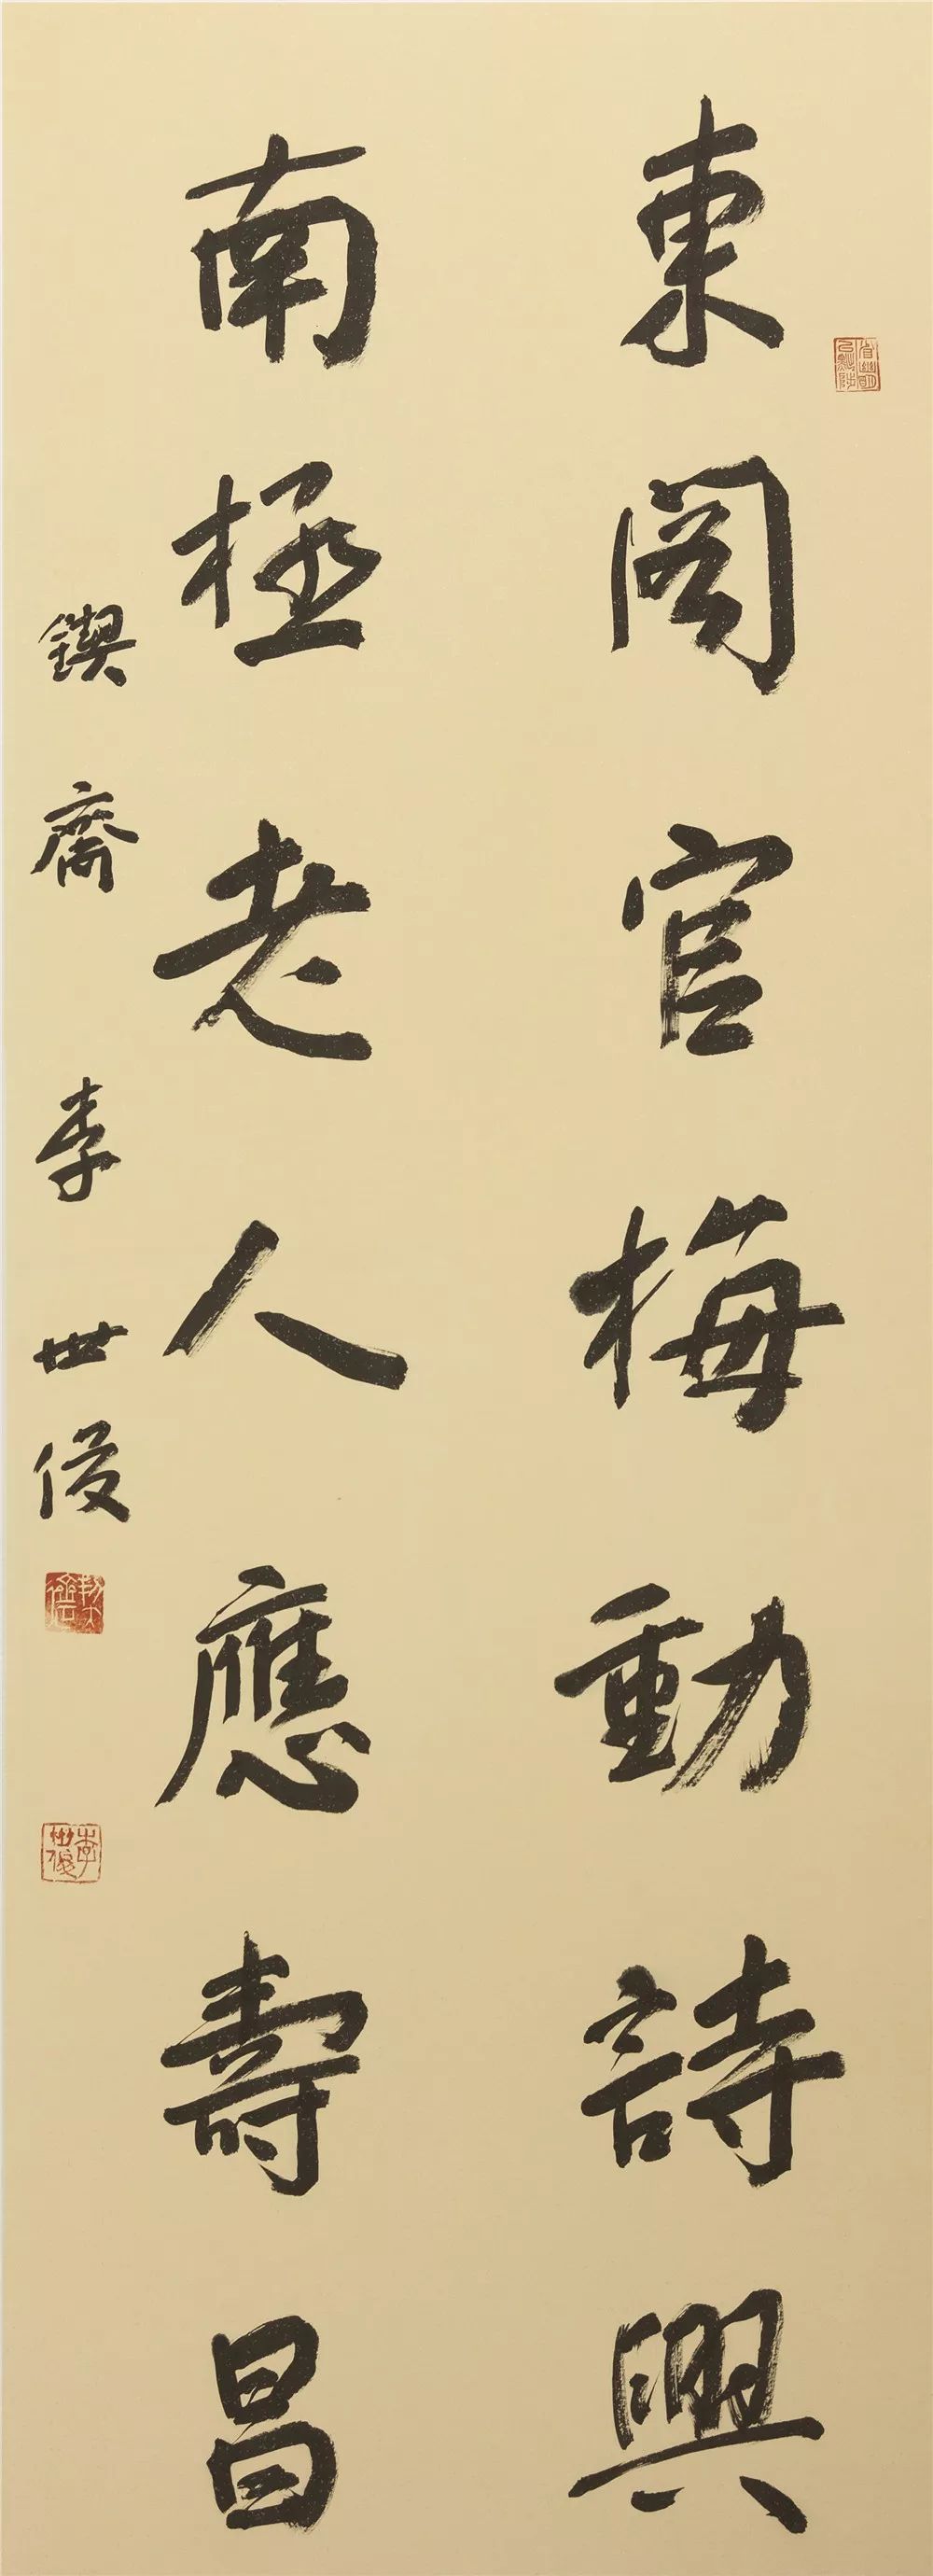 東閣官梅動詩興
南極老人應壽昌
鍥齋 李世俊